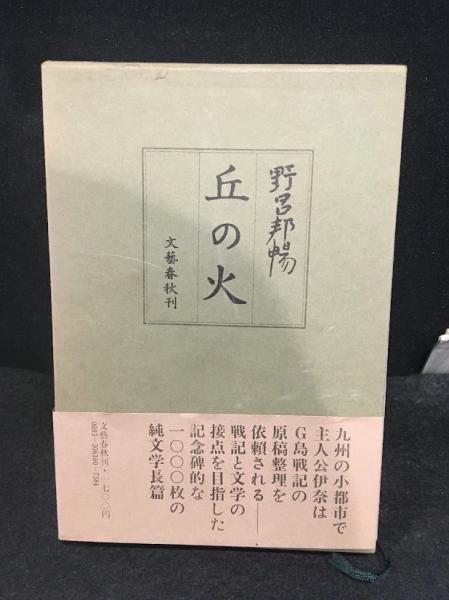 野呂邦暢
丘の火
文藝春秋刊
九州の小都市で
主人公伊奈は
G島戦記の
原稿整理を
依頼される――
戦記と文学の
接点を目指した
記念碑的な
一〇〇〇枚の
純文学長篇
文藝春秋刊・一七〇〇円
0093-306160-7384